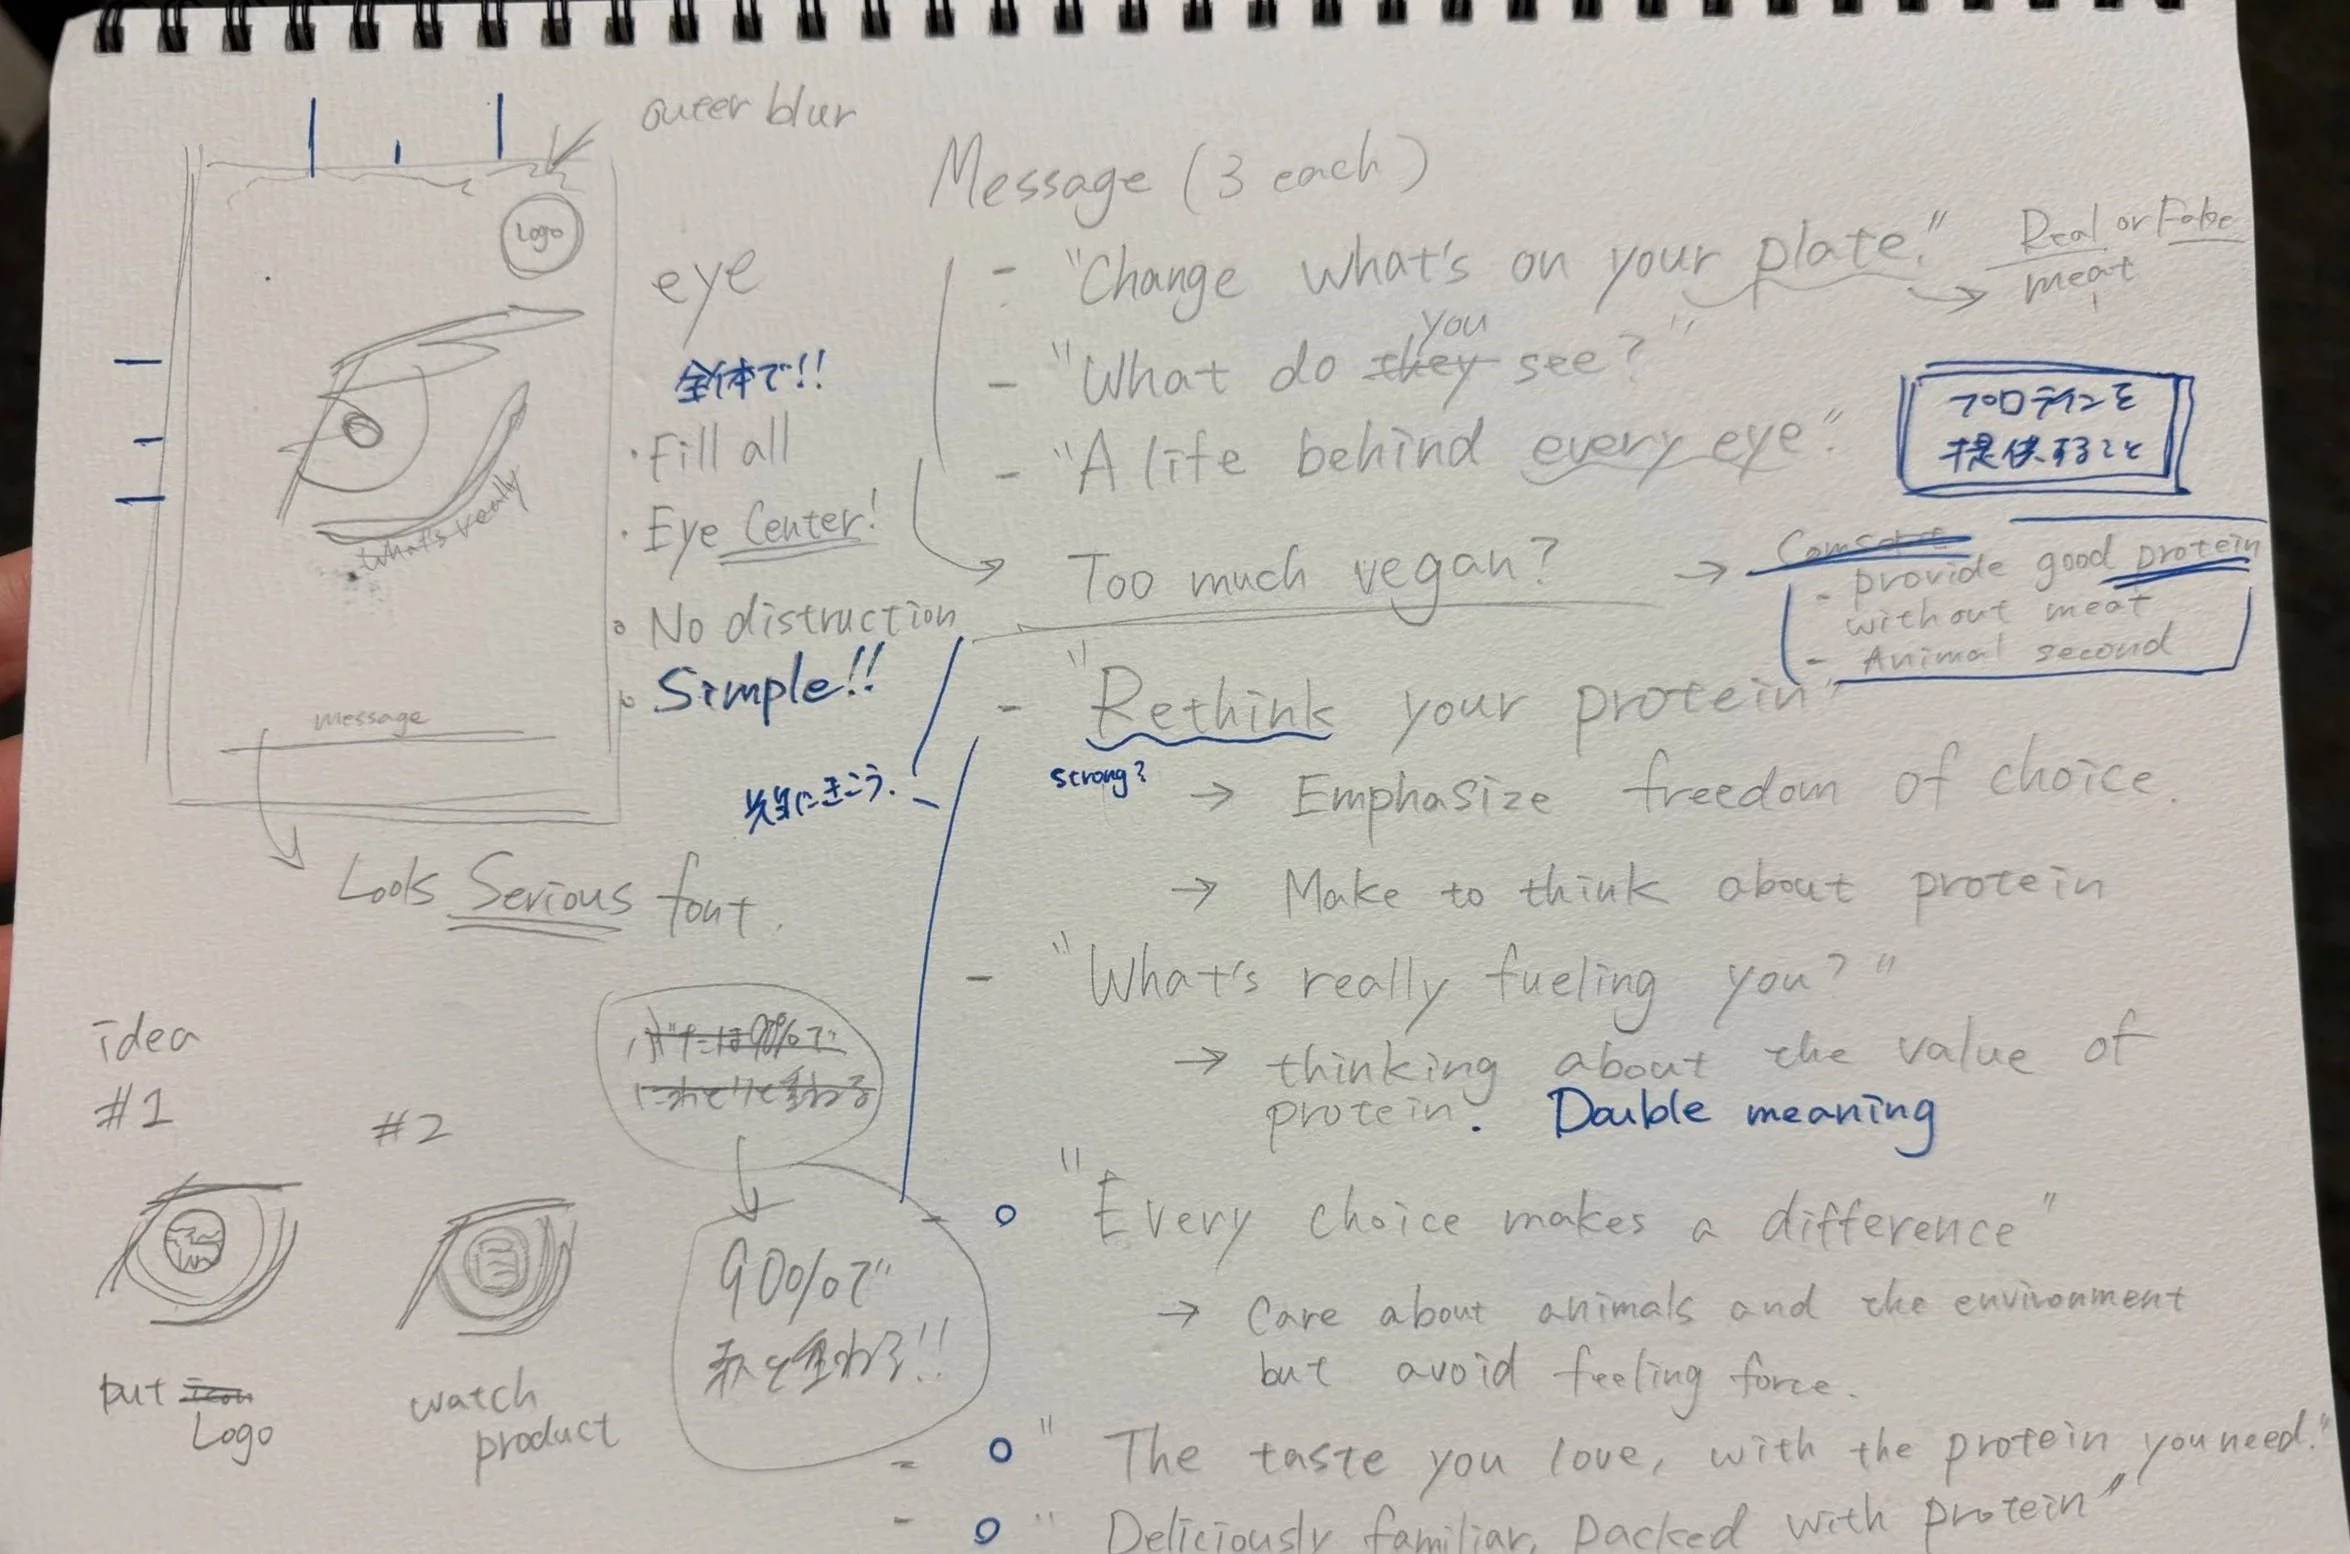 outer blur
Logo
What's really
message
eye
全体で!!
・Fill all
・Eye Center!
No distruction
Simple!!
Looks Serious font.
idea
#1
#2
put icon
Logo
watch
product
90%で
Message (3 each)
- "Change what's on your plate."
Real or False
meat
you
- "What do they see?"
- "A life behind every eye".
プロテインを
提供すること
Too much vegan?
- provide good protein
without meat
- Animal second
- "Rethink your protein"
strong?
→ Emphasize freedom of choice.
→ Make to think about protein
- "What's really fueling you?"
→ thinking about the value of
protein. Double meaning
- "Every choice makes a difference"
→ Care about animals and the environment
but avoid feeling force.
- "The taste you love, with the protein you need."
- "Deliciously familiar, packed with protein"